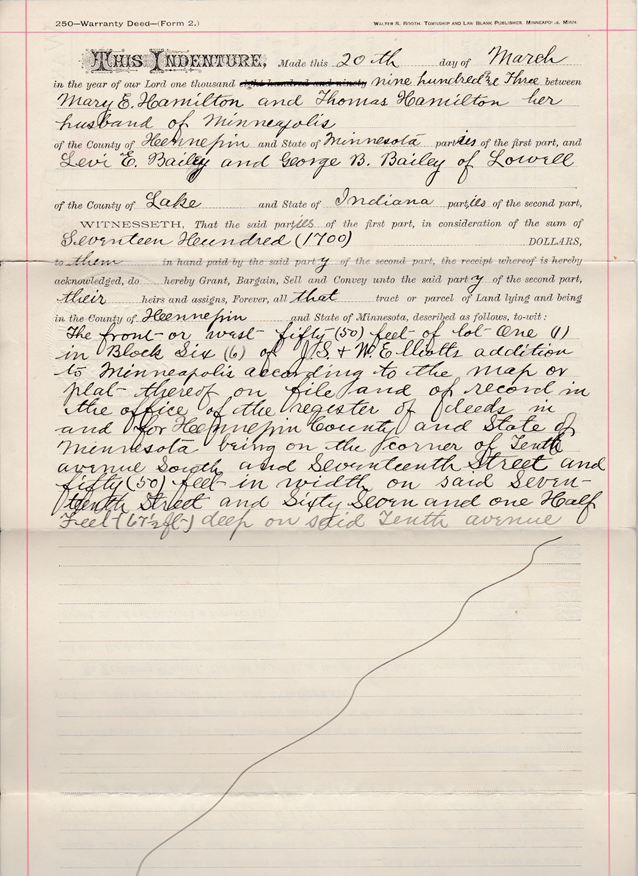 250—Warranty Deed—(Form 2.) WALTER S. BOOTH, TOWNSHIP AND LAW BLANK PUBLISHER, MINNEAPOLIS, MINN.
THIS INDENTURE, Made this 20th day of March
in the year of our Lord one thousand eight hundred and ninety nine hundred & Three between
Mary E. Hamilton and Thomas Hamilton her
husband of Minneapolis
of the County of Hennepin and State of Minnesota parties of the first part, and
Levi E. Bailey and George B. Bailey of Lowell
of the County of Lake and State of Indiana parties of the second part,
WITNESSETH, That the said parties of the first part, in consideration of the sum of
Seventeen Hundred (1700) DOLLARS,
to them in hand paid by the said party of the second part, the receipt whereof is hereby
acknowledged, do hereby Grant, Bargain, Sell and Convey unto the said party of the second part,
their heirs and assigns, Forever, all that tract or parcel of Land lying and being
in the County of Hennepin and State of Minnesota, described as follows, to-wit:
The front or west fifty (50) feet of lot One (1)
in Block Six (6) of J.S. & W. Elliotts addition
to Minneapolis according to the map or
plat thereof on file and of record in
the office of the register of deeds in
and for Hennepin County and State of
Minnesota being on the corner of Tenth
avenue South and Seventeenth Street and
fifty (50) feet in width on said Seven-
teenth Street and Sixty Seven and one Half
Feet (67½ ft) deep on said Tenth avenue